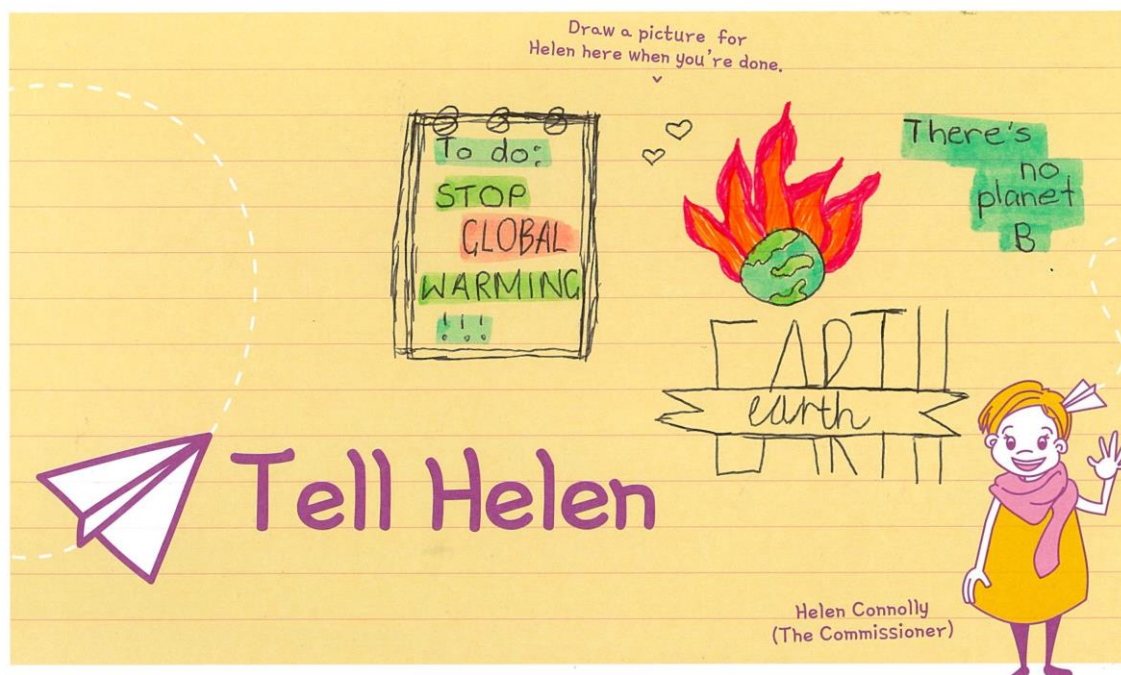 Draw a picture for
Helen here when you're done.
To do:
STOP
GLOBAL
WARMING
!!!
There's
no
planet
B
EARTH
earth
Tell Helen
Helen Connolly
(The Commissioner)